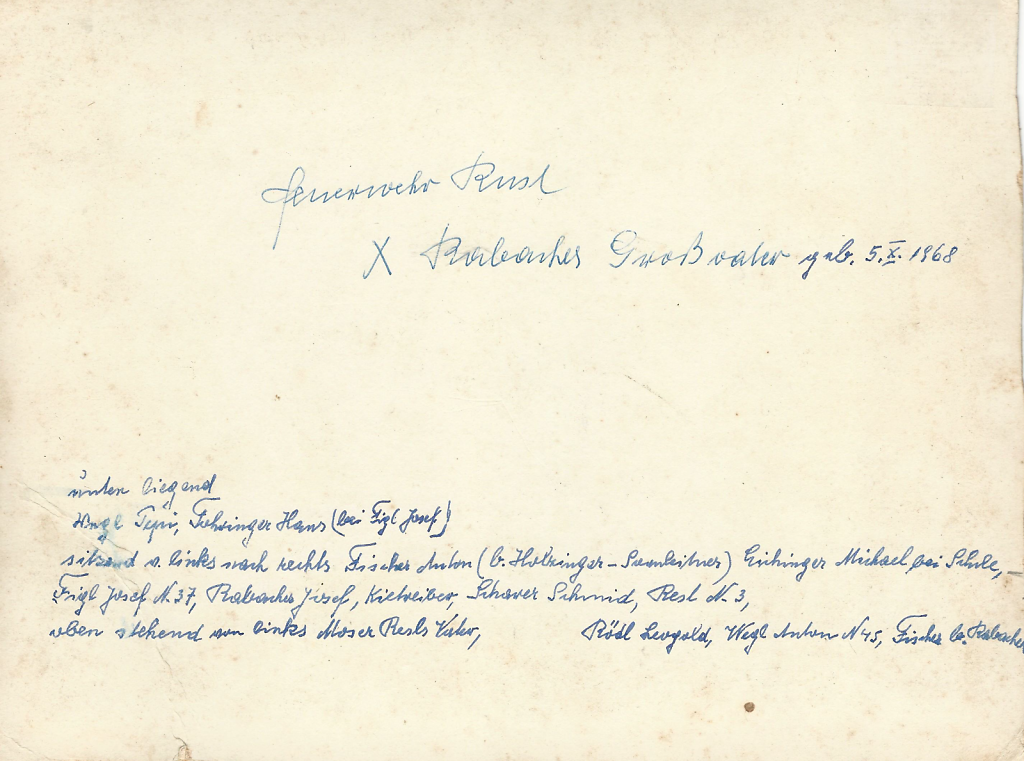 Feuerwehr Rust
X Rabacher Großvater geb. 5.X. 1968
unten liegend
Wegl Fohringer Hans (bei Figl Josef)
sitzend v. links nach rechts Fischer Anton (b. Holzinger - ) Eichinger Michael, bei Schule, -
Figl Josef N. 37, Rabacher Josef, Kietreiber, Schmid, Resl N. 3,
oben stehend von links Moser Resls Vater, Rödl Leopold, Wegl Anton N 45, Fischer b. Rabacher